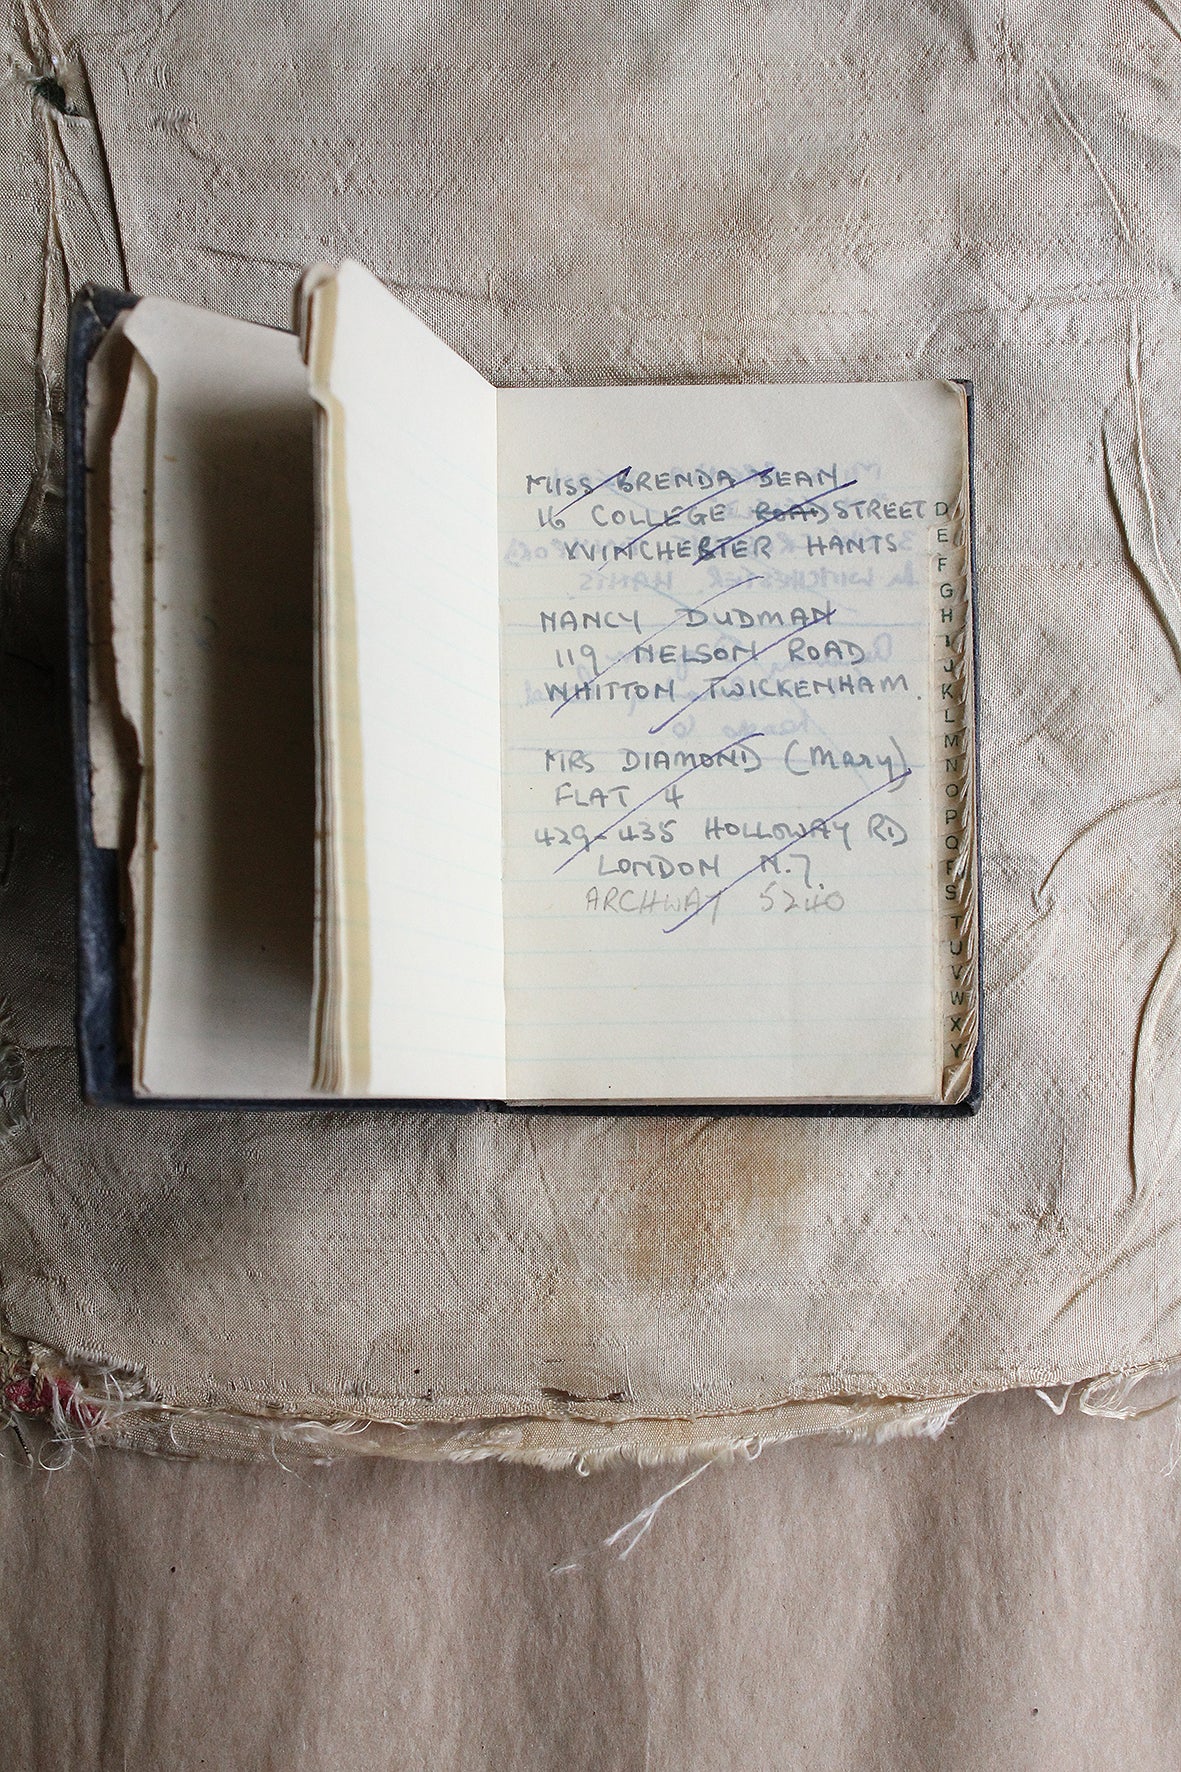 MISS BRENDA DEAN
16 COLLEGE ROAD STREET
WINCHESTER HANTS
NANCY DUDMAN
119 NELSON ROAD
WHITTON TWICKENHAM.
MRS DIAMOND (Mary)
FLAT 4
429-435 HOLLOWAY RD
LONDON N.7.
ARCHWAY 5240
D
E
F
G
H
I
J
K
L
M
N
O
P
Q
R
S
T
U
V
W
X
Y